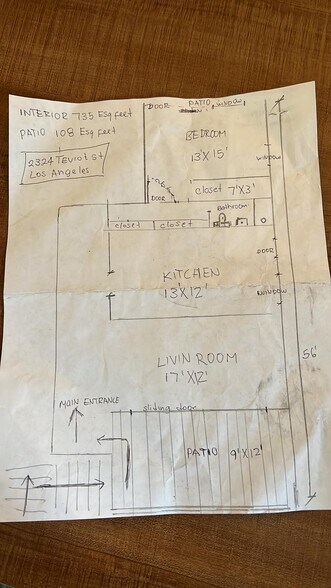 INTERIOR 735 Esq feet
PATIO 108 Esq feet
2324 Teviot St
Los Angeles
DOOR
PATIO
WINDOW
BEDROOM
13'X 15'
WINDOW
closet 7'X3'
DOOR
Bathroom
closet
closet
DOOR
KITCHEN
13'X12'
WINDOW
LIVIN ROOM
17'X12'
56'
MAIN ENTRANCE
sliding door
PATIO 9'X12'